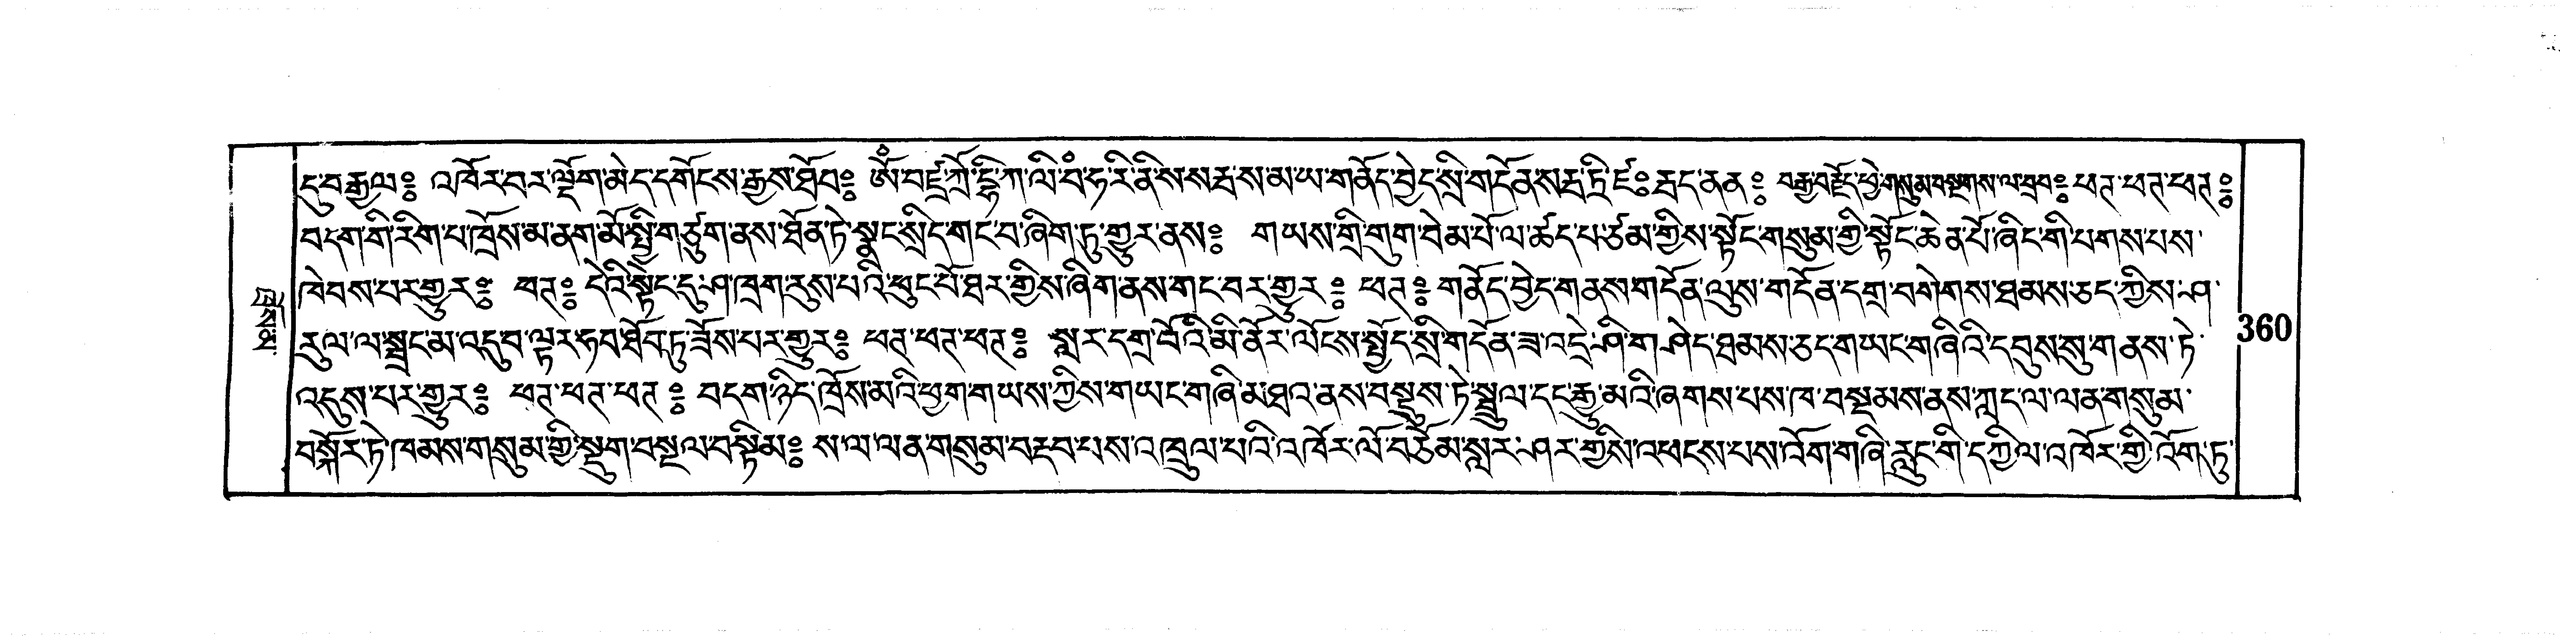 ངུ་བརྒྱལ༔ འཁོར་བར་ལྡོག་མེད་དགོངས་རྒྱས་ཐོབ༔ ཨོཾ་བཛྲ་ཀྲོ་དྷི་ཀ་ལི་བཾ་ཧ་རི་ནི་ས་ས་རྦད་ས་མ་ཡ་གནོད་བྱེད་སྲི་གདོན་སརྦ་ཏྲི་ཛ༔ རྦད་ནན༔ བརྒྱ་བརྗོད་ཕྱེ་གསུམ་བསྔགས་ལ་བྲབ༔ ཕཊ་ཕཊ་ཕཊ༔
བདག་གི་རིག་པ་ཁྲོས་མ་ནག་མོ་སྤྱི་གཙུག་ནས་ཐོན་ཏེ་སྣང་སྲིད་གང་བ་ཞིག་ཏུ་གྱུར་ནས༔ གཡས་གྲི་གུག་བེམ་པོ་ལ་ཚད་པ་ཙམ་གྱིས་སྟོང་གསུམ་གྱི་སྟོང་ཆེན་པོ་ཞིང་གི་པགས་པས་
ཁེབས་པར་གྱུར༔ ཕཊ༔ དེའི་སྟེང་དུ་ཤ་ཁྲག་རུས་པའི་ཕུང་པོ་ཐར་གྱིས་ཞིག་ནས་གང་བར་གྱུར༔ ཕཊ༔ གནོད་བྱེད་གནས་གདོན་ལུས་གདོན་དགྲ་བགེགས་ཐམས་ཅད་ཀྱིས་ཤ་
རུལ་ལ་སྦྲང་མ་འདུབ་ལྟར་ཧབ་ཐོབ་ཏུ་ཟོས་པར་གྱུར༔ ཕཊ་ཕཊ་ཕཊ༔ སླར་དགྲ་བོའི་མི་ནོར་ལོངས་སྤྱོད་སྲི་གདོན་ཟ་འདྲེ་ཤི་གཤེད་ཐམས་ཅད་གཡང་གཞིའི་དབུས་སུ་གནས་ཏེ་
འདུས་པར་གྱུར༔ ཕཊ་ཕཊ་ཕཊ༔ བདག་ཉིད་ཁྲོས་མའི་ཕྱག་གཡས་ཀྱིས་གཡང་གཞི་མཐའ་ནས་བསྡུས་ཏེ་སྦྲུལ་དང་རྒྱུ་མའི་ཞགས་པས་ཁ་བསྡམས་ནས་ཀླད་ལ་ལན་གསུམ་
བསྐོར་ཏེ་ཁམས་གསུམ་གྱི་སྡུག་བསྔལ་བསྟིམ༔ ས་ལ་ལན་གསུམ་བརྡབ་པས་འཁྲུལ་པའི་འཁོར་ལོ་བཅོམ་སླར་ཤར་གྱིས་འཕངས་པས་འོག་གཞི་རླུང་གི་དཀྱིལ་འཁོར་གྱི་འོག་ཏུ་
360